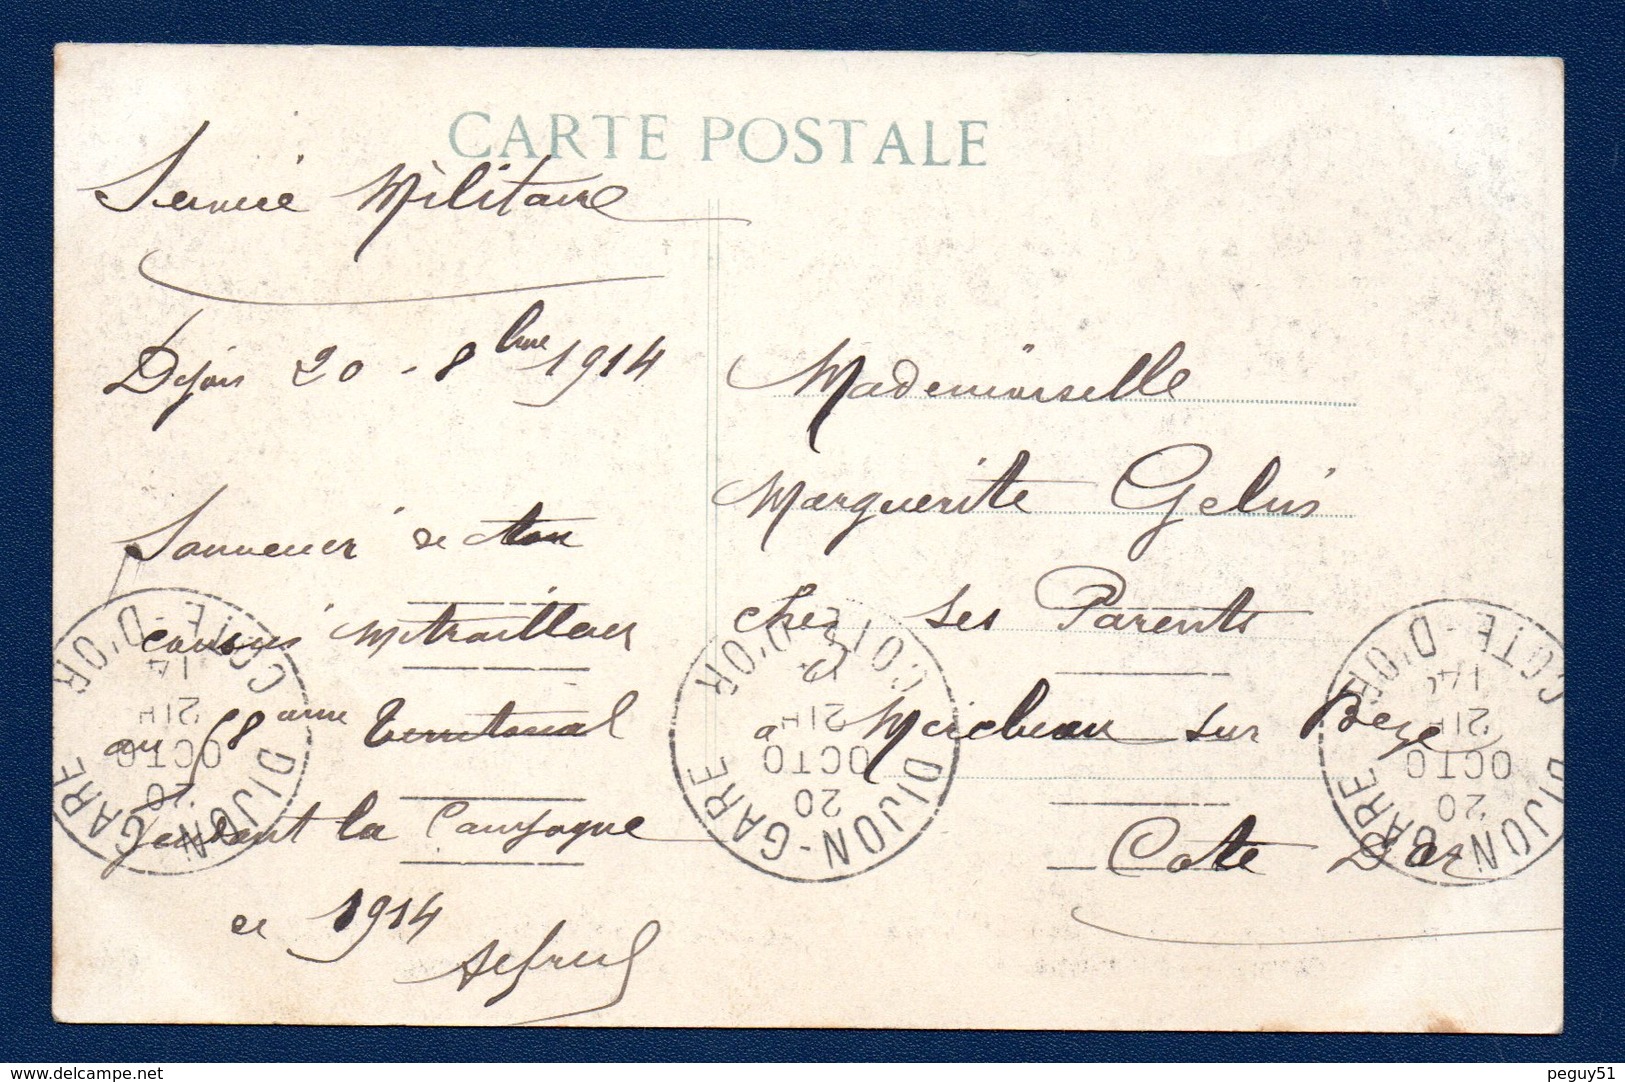 CARTE POSTALE
Service Militaire
Dijon 20 - 8bre 1914
Souvenir de ton
cousin mitrailleur
au 58eme Territorial
pendant la Campagne
de 1914
Mademoiselle
Marguerite Gelin
chez ses Parents
a Mirebeau sur Beze
Cote D'or
DIJON-GARE
COTE-D'OR
20
OCTO
21H
14
DIJON-GARE
COTE-D'OR
20
OCTO
21H
14
DIJON-GARE
COTE-D'OR
20
OCTO
21H
14
www.delcampe.net
peguy51